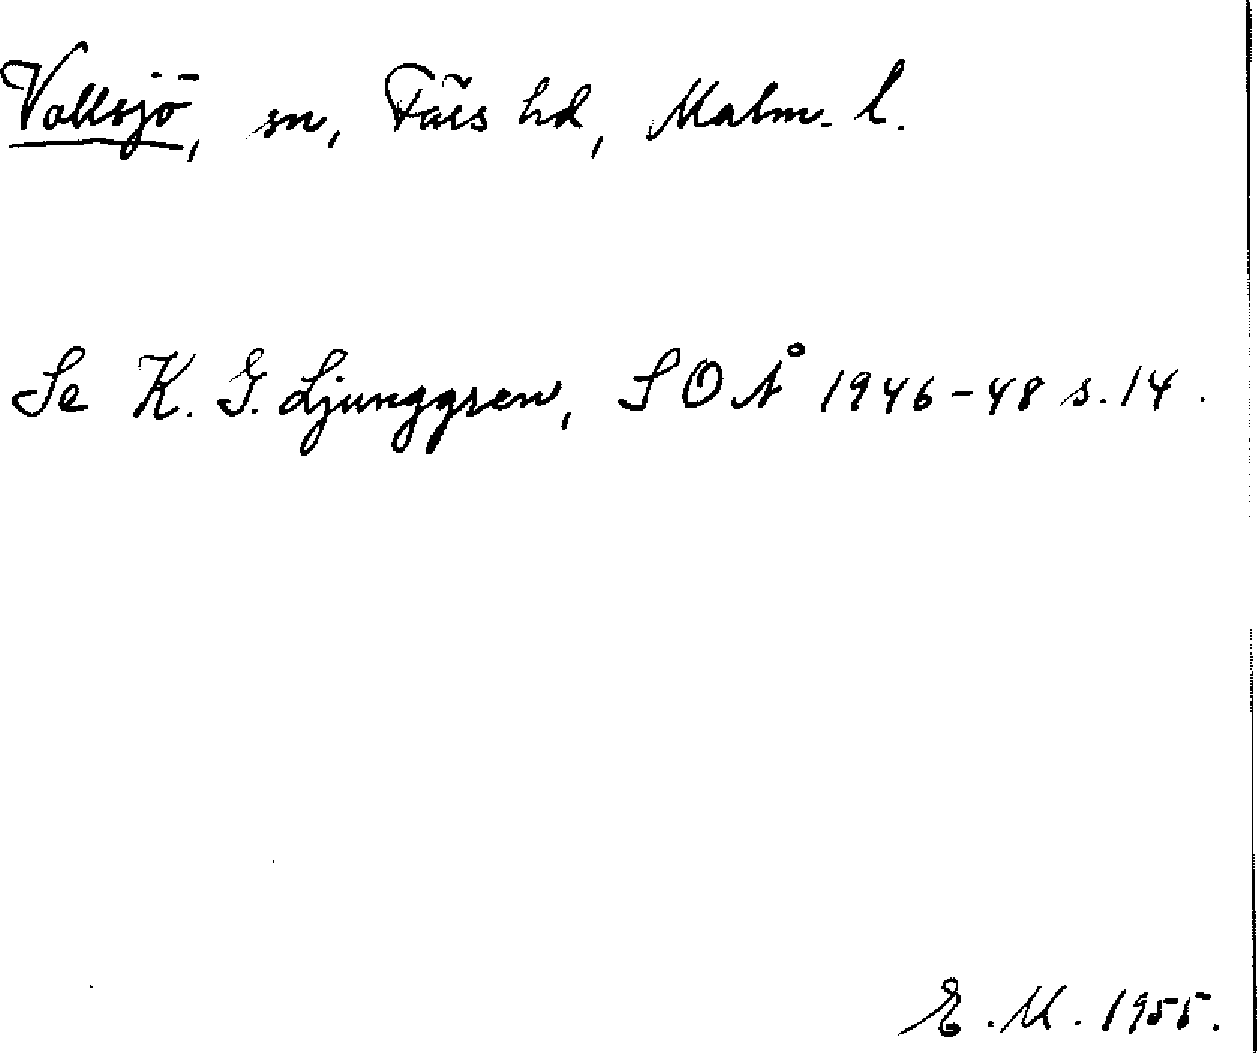 Vollsjö, sn, Färs hd, Malm. l.
Se K. G. Ljunggren, SOÅ 1946-48 s. 14.
E. M. 1955.